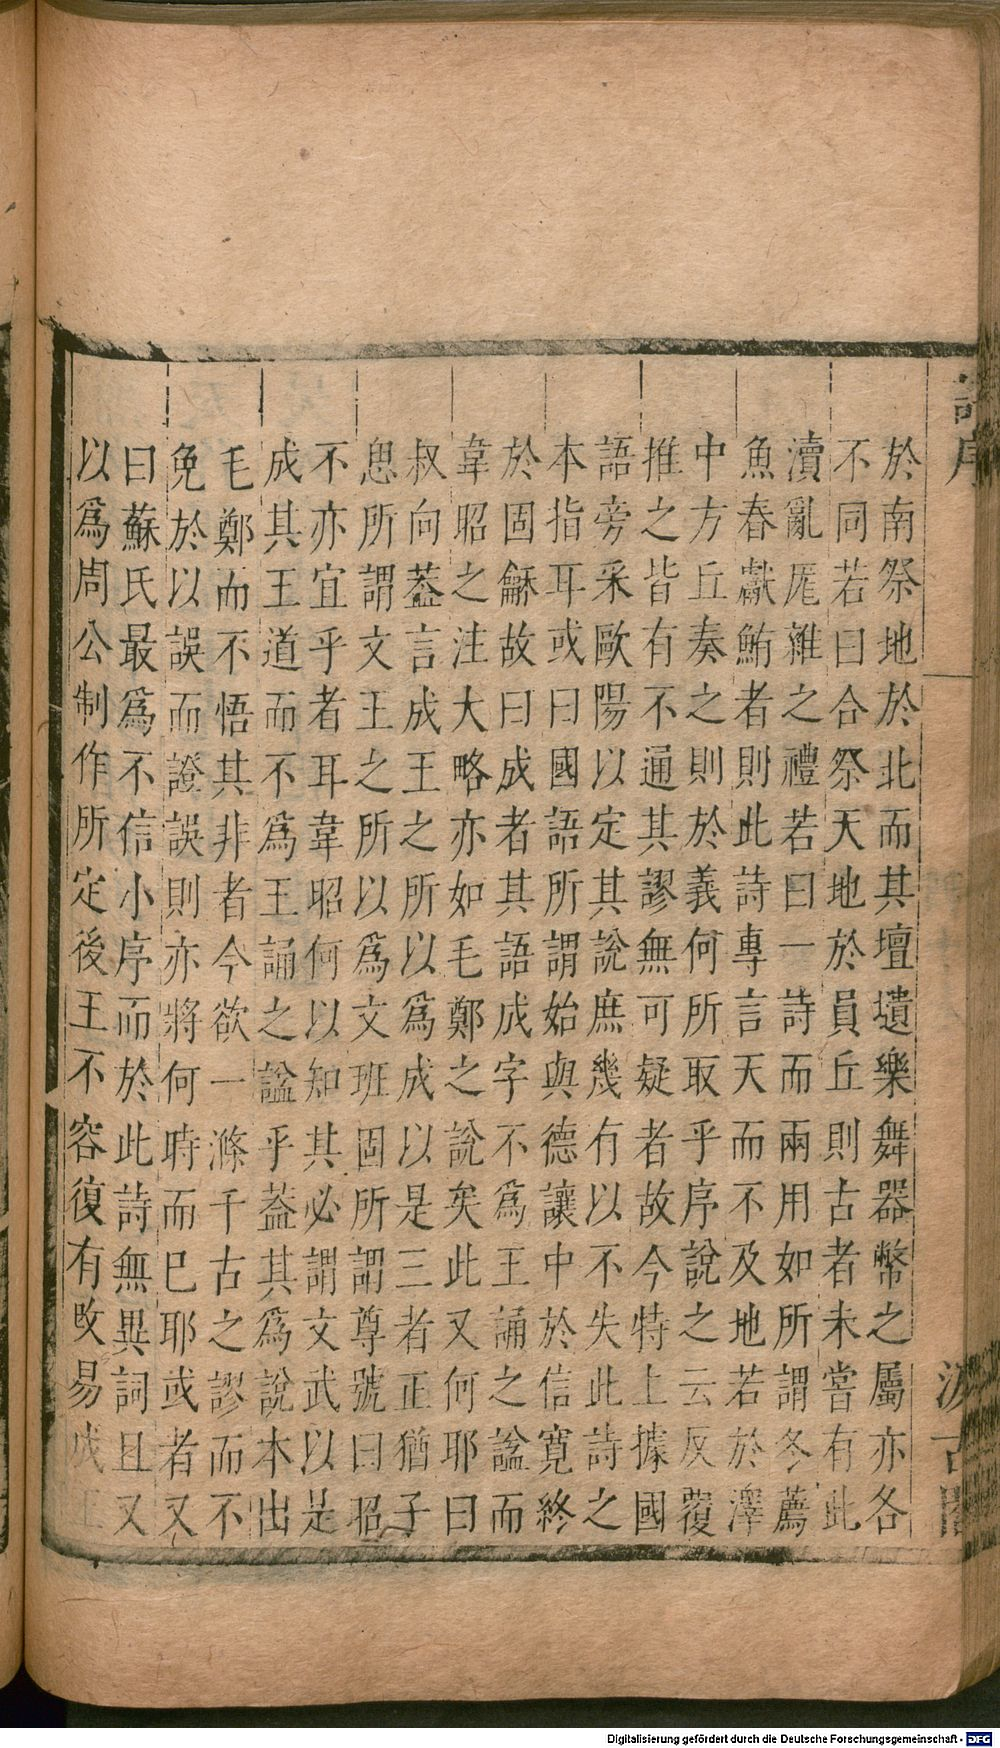 詩序
於南祭地於北而其壇壝樂舞器幣之屬亦各
不同若曰合祭天地於員丘則古者未嘗有此
瀆亂厖雜之禮若曰一詩而兩用如所謂冬薦
魚春獻鮪者則此詩專言天而不及地若於澤
中方丘奏之則於義何所取乎序說之云反覆
推之皆有不通其謬無可疑者故今特上據國
語旁采歐陽以定其說庶幾有以不失此詩之
本指耳或曰國語所謂始與德讓中於信寬終
於固龢故曰成者其語成字不為王誦之諡而
韋昭之注大略亦如毛鄭之說矣此又何耶曰
叔向葢言成王之所以為成以是三者正猶子
思所謂文王之所以為文班固所謂尊號曰昭
不亦宜乎者耳韋昭何以知其必謂文武以是
成其王道而不為王誦之諡乎葢其為說本出
毛鄭而不悟其非者今欲一滌千古之謬而不
免於以誤而證誤則亦將何時而巳耶或者又
曰蘇氏最為不信小序而於此詩無異詞且又
以為周公制作所定後王不容復有攺易成
汲古閣
Digitalisierung gefördert durch die Deutsche Forschungsgemeinschaft - DFG